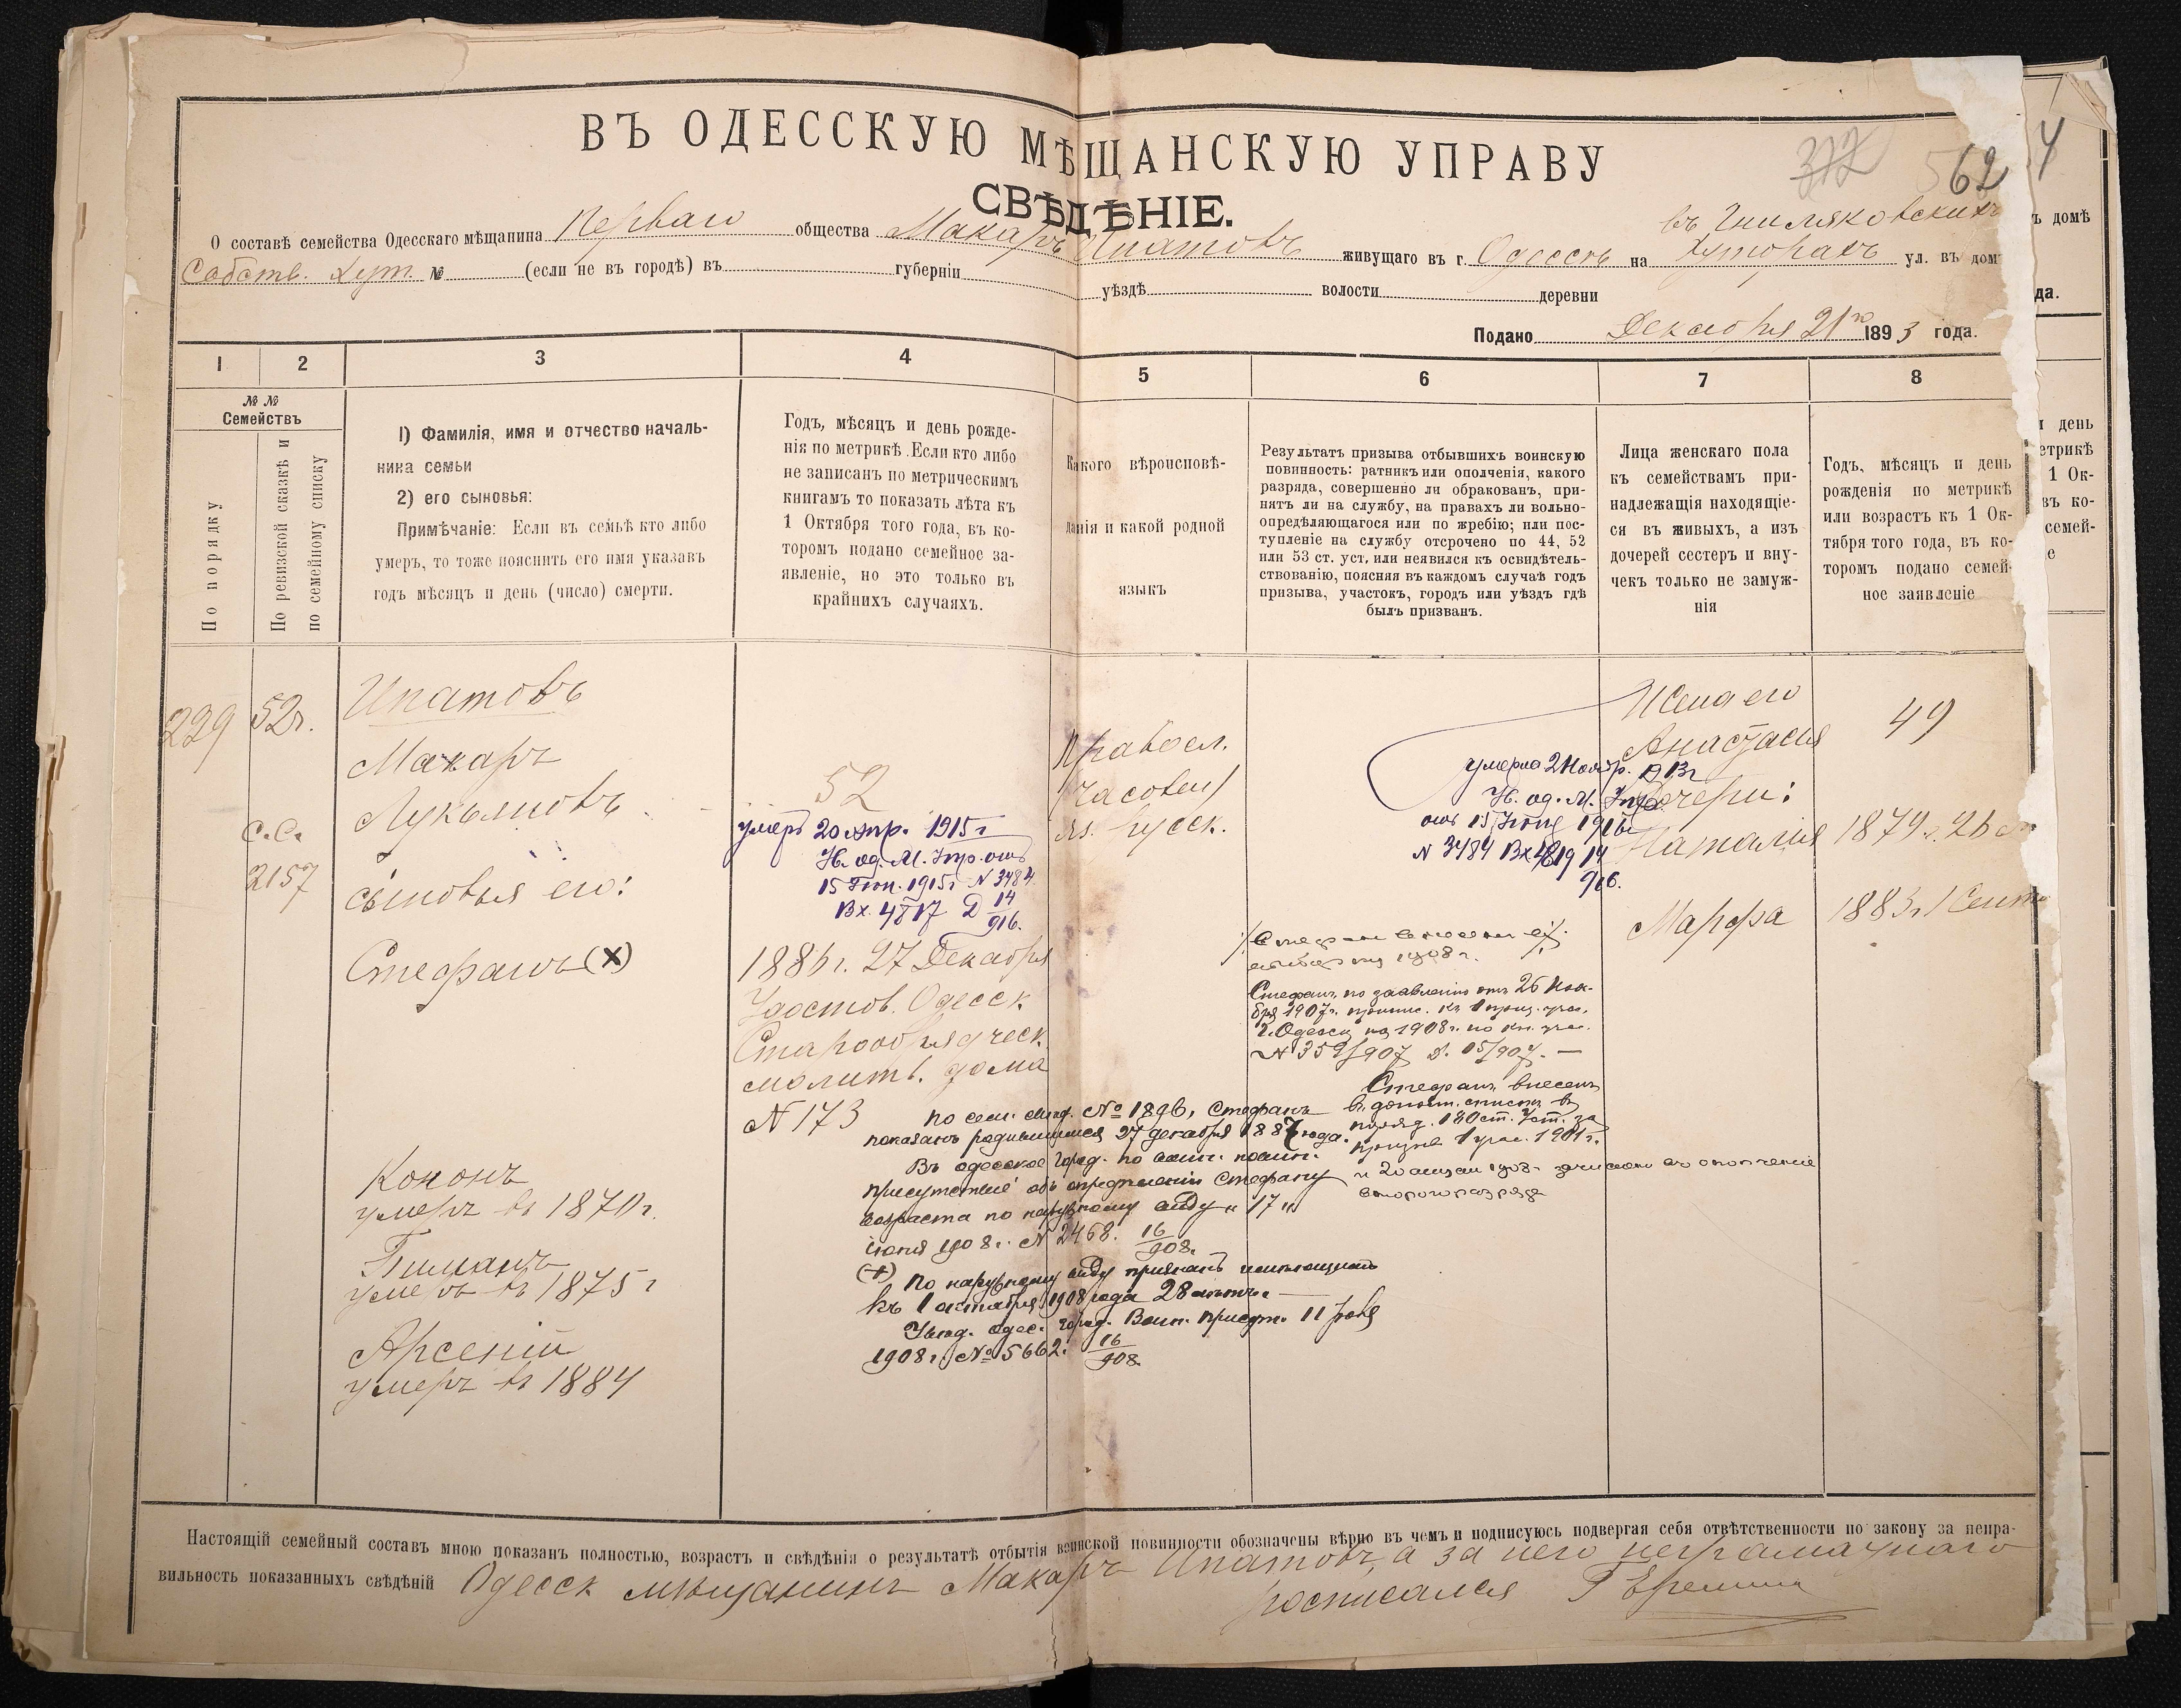 ВЪ ОДЕССКУЮ МѢЩАНСКУЮ УПРАВУ
312 562 4
СВѢДѢНІЕ.
О составѣ семейства Одесскаго мѣщанина Перваго общества Макаръ Ипатовъ живущаго въ г. Одессѣ на въ Хуторахъ ул. въ дом
Собств. Хут. № (если не въ городѣ) въ губерніи уѣздѣ волости деревни
Подано Декабря 21го 1893 года.
ъ домѣ
да.
1 2 3 4 5 6 7 8
№ №
Семействъ
По порядку
По ревизской сказкѣ и
по семейному списку
1) Фамилія, имя и отчество началь-
ника семьи
2) его сыновья:
Примѣчаніе: Если въ семьѣ кто либо
умеръ, то тоже пояснить его имя указавъ
годъ мѣсяцъ и день (число) смерти.
Годъ, мѣсяцъ и день рожде-
нія по метрикѣ. Если кто либо
не записанъ по метрическимъ
книгамъ то показать лѣта къ
1 Октября того года, въ ко-
торомъ подано семейное за-
явленіе, но это только въ
крайнихъ случаяхъ.
Какого вѣроисповѣ-
данія и какой родной
языкъ
Результатъ призыва отбывшихъ воинскую
повинность: ратникъ или ополченія, какого
разряда, совершенно ли обракованъ, при-
нятъ ли на службу, на правахъ ли вольно-
опредѣляющагося или по жребію; или пос-
тупленіе на службу отсрочено по 44, 52
или 53 ст. уст. или неявился къ освидѣтель-
ствованію, поясняя въ каждомъ случаѣ годъ
призыва, участокъ, городъ или уѣздъ гдѣ
былъ призванъ.
Лица женскаго пола
къ семействамъ при-
надлежащія находящіе-
ся въ живыхъ, а изъ
дочерей сестеръ и вну-
чекъ только не замуж-
нія
Годъ, мѣсяцъ и день
рожденія по метрикѣ
или возрастъ къ 1 Ок-
тября того года, въ ко-
торомъ подано семей-
ное заявленіе
и день
етрикѣ
1 Ок-
въ ко-
семей-
е
229
52г.
С.С.
2157
Ипатовъ
Макаръ
Лукьяновъ
сыновья его:
Стефанъ (х)
Кононъ
умеръ въ 1870г.
умеръ въ 1875г
Арсеній
умеръ въ 1884
52
умеръ 20 апр. 1915г
Н. од. М. Упр. отъ
15 Іюн. 1915г N 3484
Вх. 4817 Д 14/916.
1886г. 27 Декабря
Удостов. Одесск.
Старообрядческ.
молитв. дома
N 173
Правосл.
Часовен
яз. Русск.
умерла 2 Ноябр. 1913г
Н. од. М. Упр.
отъ 15 Іюня 1916г
N 3484 Вх. 4819 14
916.
Стефанъ внесенъ
1908г.
Стефанъ, по заявленію отъ 26 Ноя-
бря 1907г. припис. къ 1 приз. учас.
г. Одессы на 1908г. по кн. учас.
N 359/907 д. 15/907. —
Стефанъ внесенъ
в дополн. списки въ
поряд. 180 ст. Уст. за
1 учас. 1901г.
и 20 1908г зачисленъ въ ополченіе
второго разряда
по сем. № 1896, Стефанъ
показанъ родившимся 27 декабря 1887 года.
Въ одесское город. по воин. повин.
присутствіе объ опредѣленіи Стефану
возраста по наружному виду „17„
іюня 1908г. N 2468. 16/908.
(+) по наружному виду признанъ имѣющимъ
къ 1 октября 1908 года 28 лѣтъ. —
Увѣд. одес. город. Воин. Присут. 11
1908г. № 5662. 16/908.
Жена его
Анастасія
Дочери:
Наталія
Марфа
49
1879г. 26
1883г. 1 Сент
Настоящій семейный составъ мною показанъ полностью, возрастъ и свѣдѣнія о результатѣ отбытія воинской повинности обозначены вѣрно въ чемъ и подписуюсь подвергая себя отвѣтственности по закону за непра-
вильность показанныхъ свѣдѣній Одесск мѣщанинъ Макаръ Ипатовъ, а за него неграмотнаго
росписался